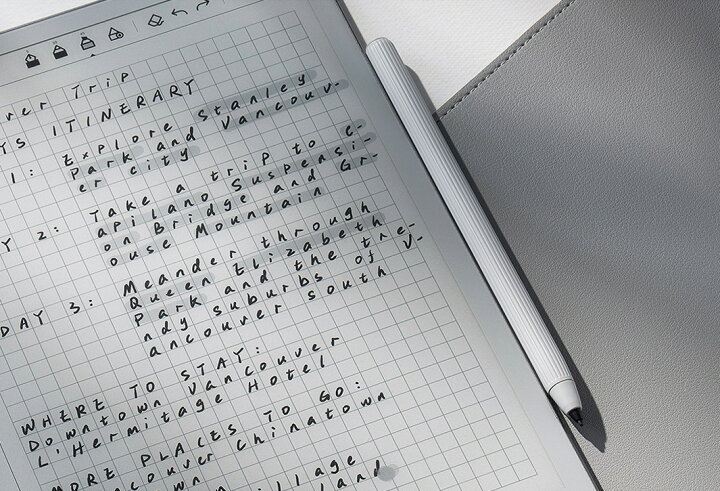 ver Trip
YS ITINERARY
1: Explore Stanley
Park and Vancouv-
er city
Y 2: Take a trip to C-
apilano Suspensi-
on Bridge and Gr-
ouse Mountain
DAY 3: Meander through
Queen Elizabeth
Park and the tre-
ndy suburbs of V-
ancouver south
WHERE TO STAY:
Downtown Vancouver
L'Hermitage Hotel
MORE PLACES TO GO:
ncouver Chinatown
own
illage
land